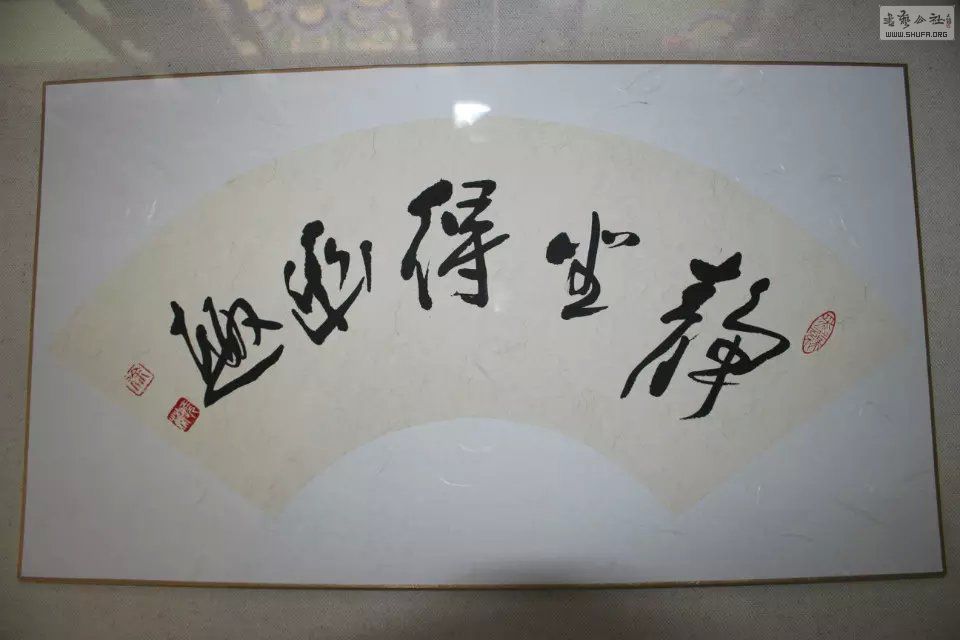 静坐得幽趣
書藝公社
WWW.SHUFA.ORG